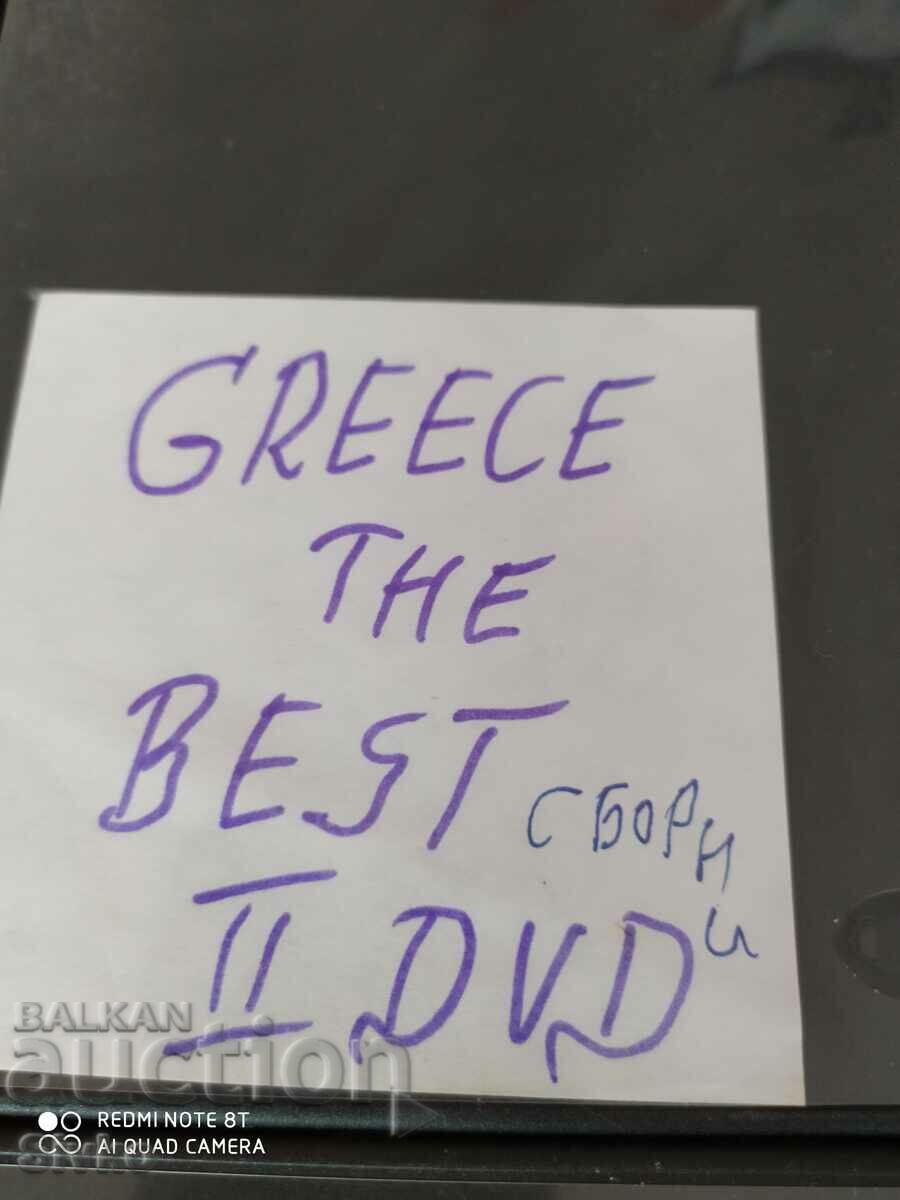 GREECE
THE
BEST СБОРНИ
II DVD
BALKAN
auction
REDMI NOTE 8T
AI QUAD CAMERA